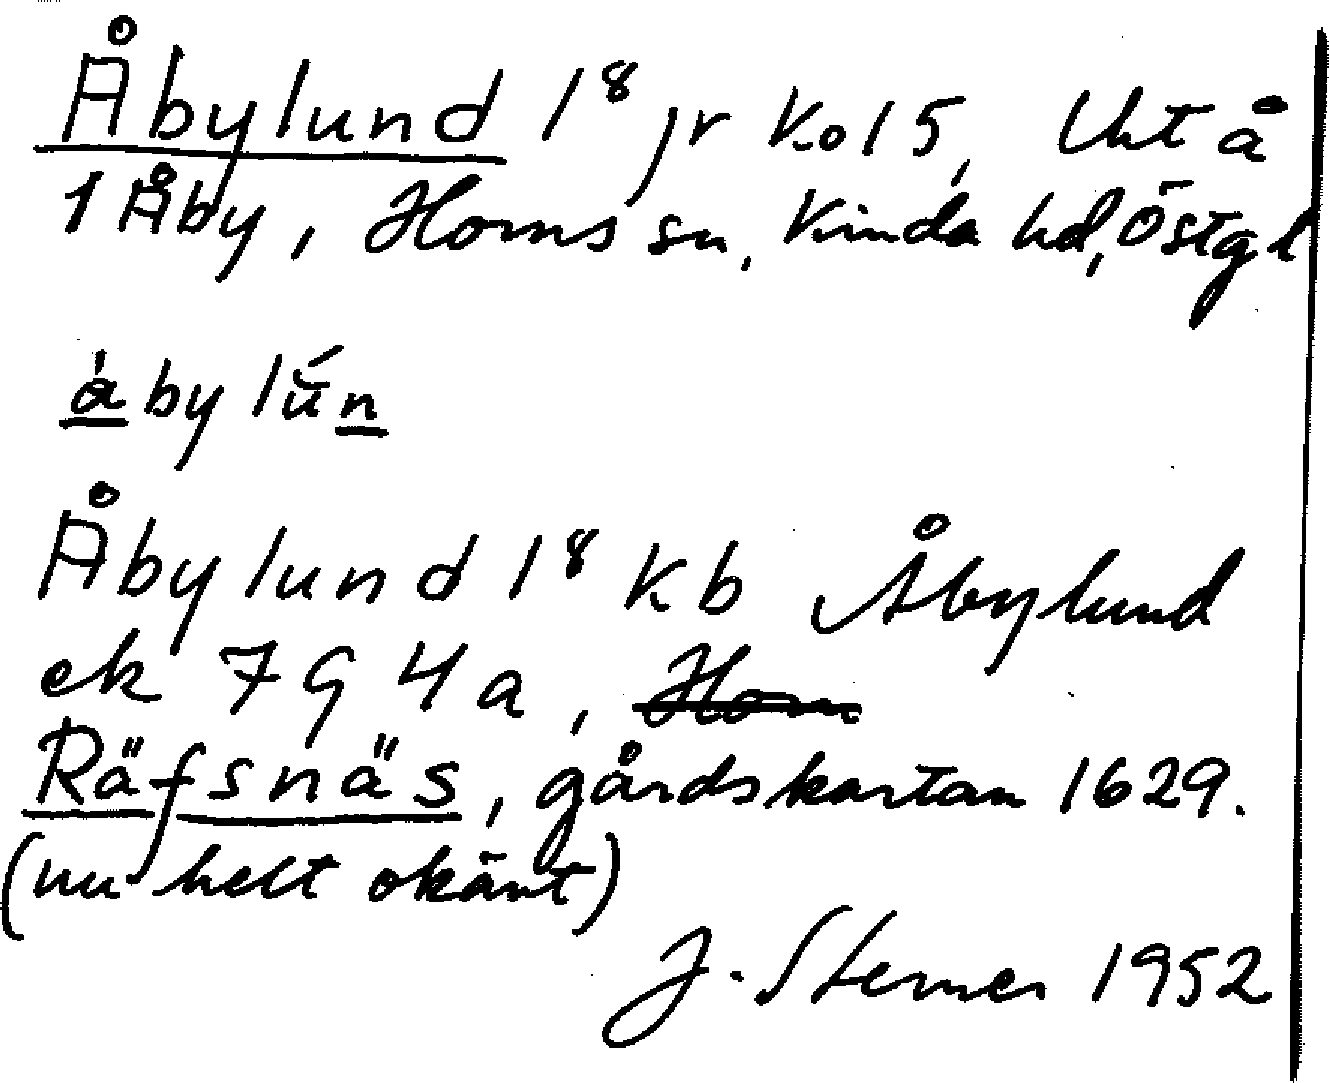 Åbylund 1⁸ jr Ko15, Uht å
1 Åby, Horns sn, Kinda hd, Östgl
å̀by lŭ́n
Åbylund 1⁸ Kb Åbylund
ek 794a, Horn
Räfsnäs, gårdskartan 1629.
(nu helt okänt)
J. Sterner 1952